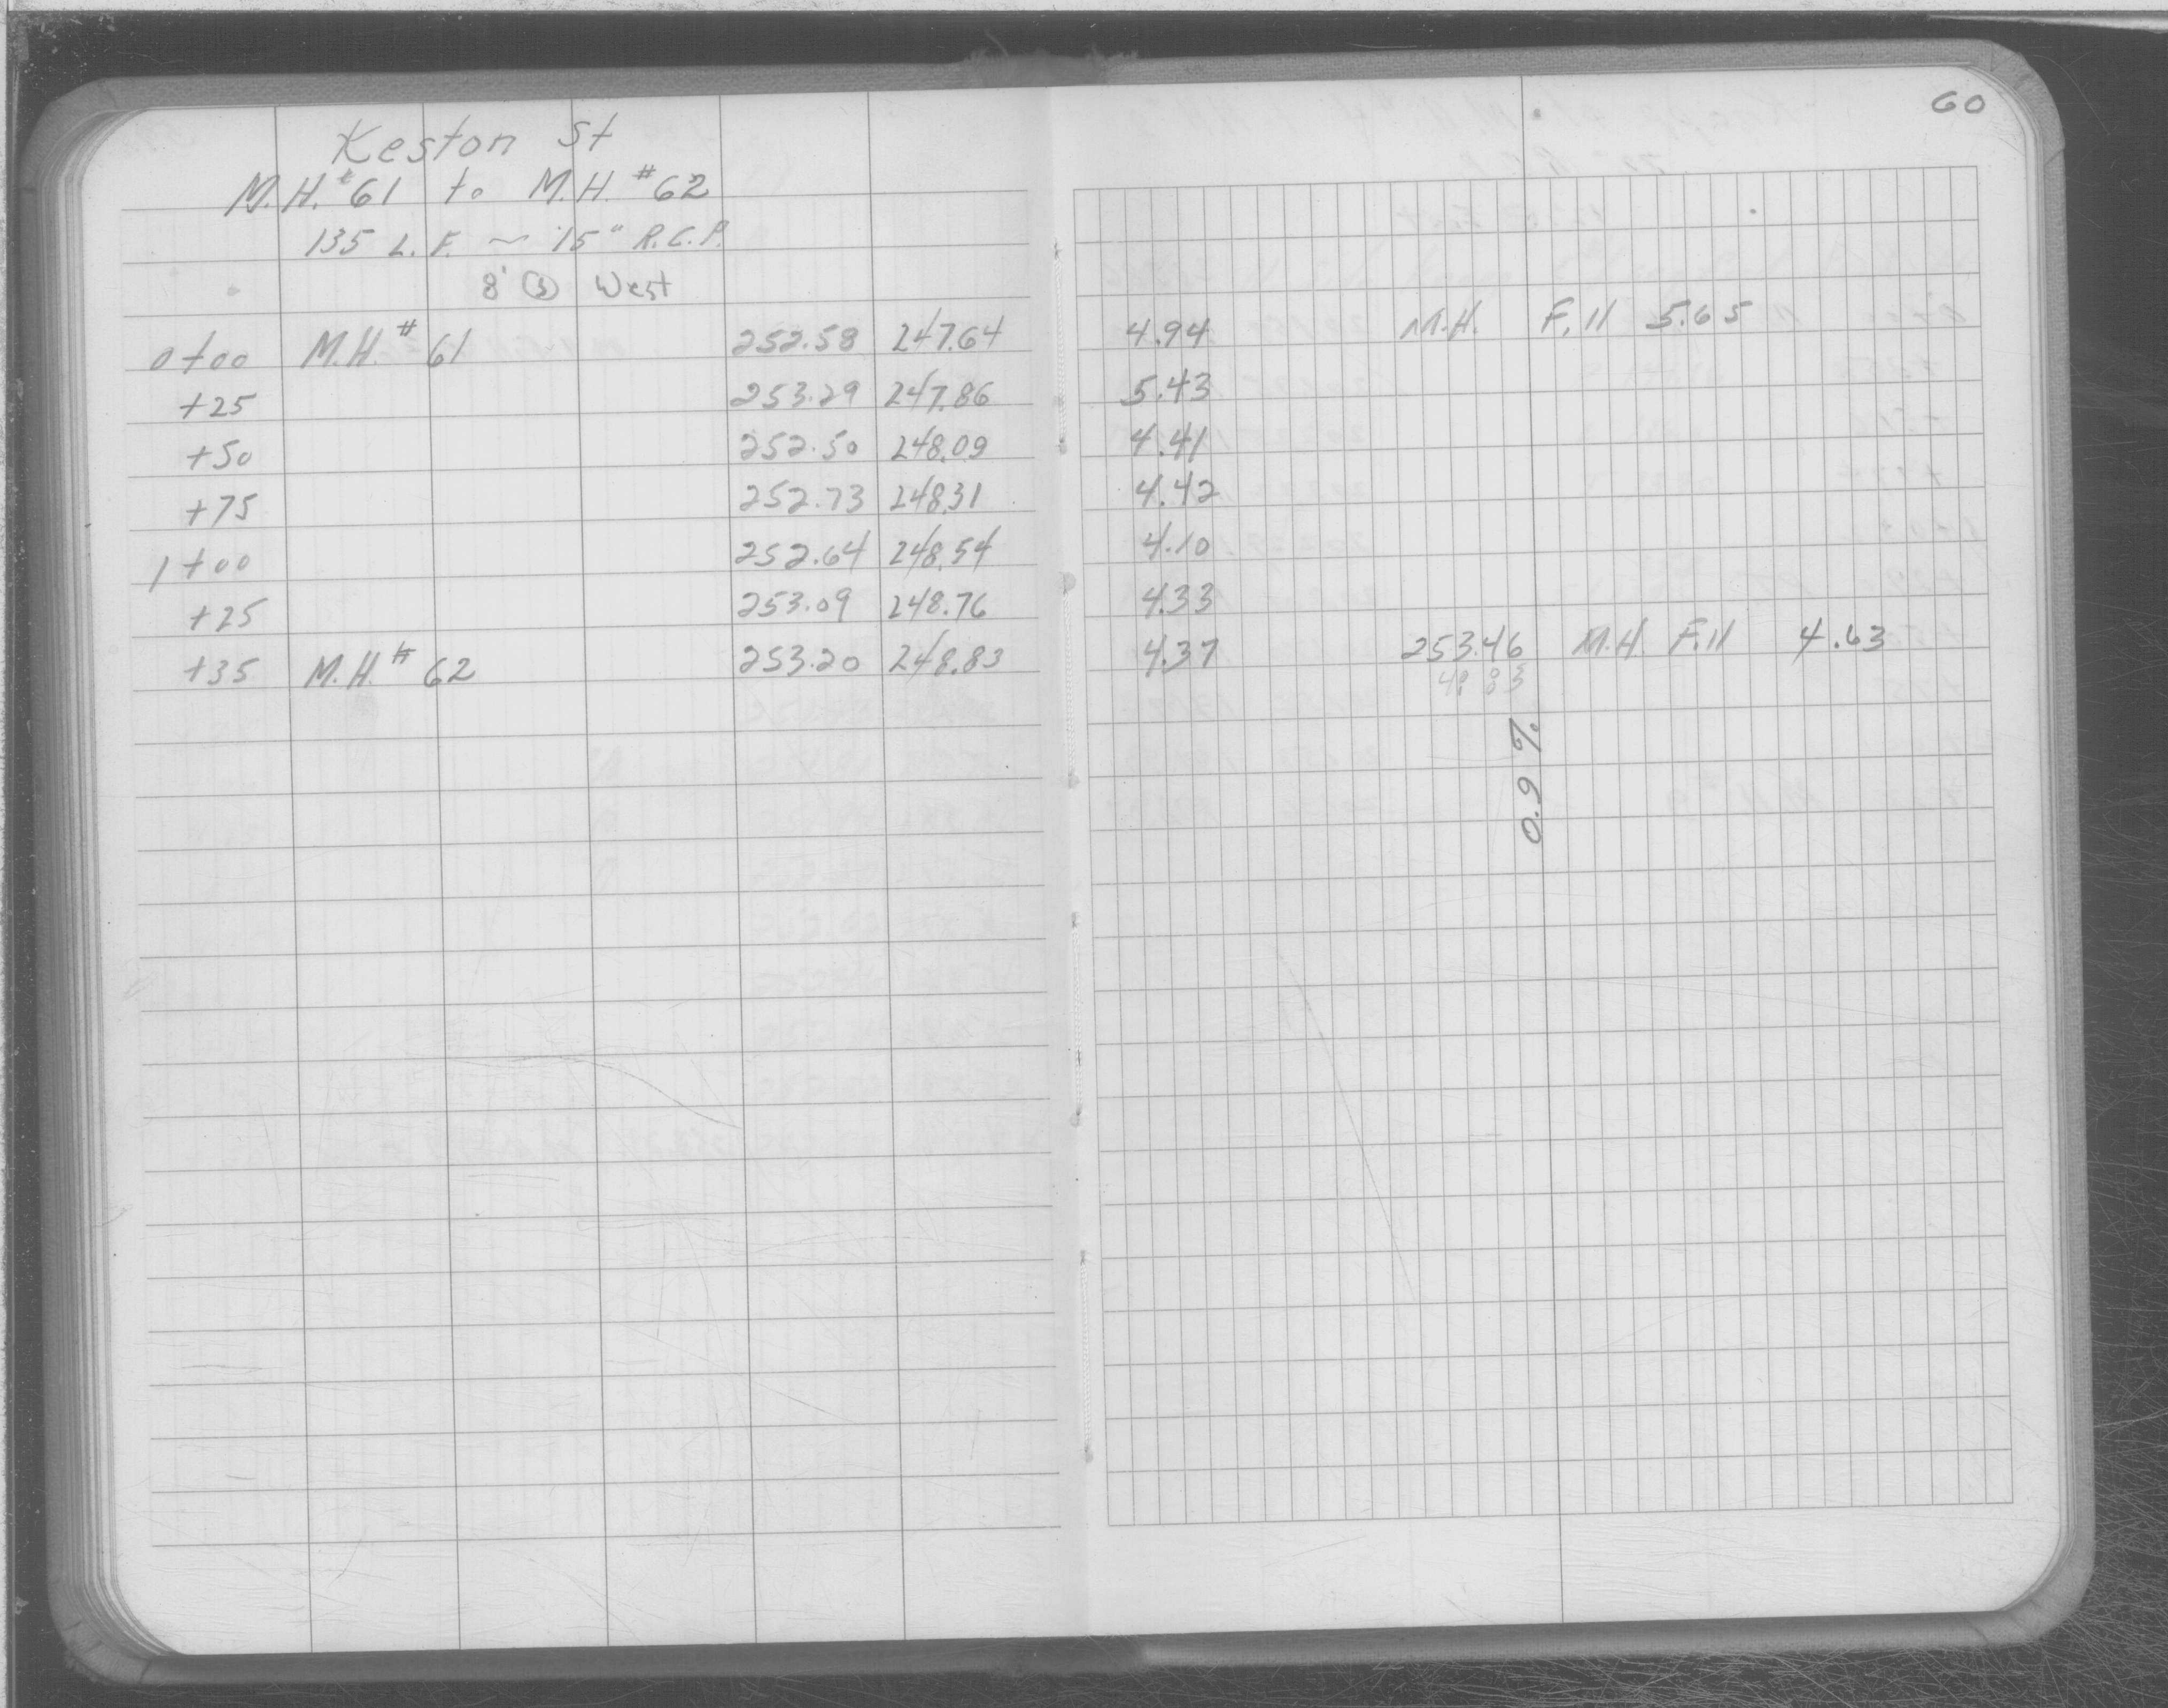 60
Keston St
M.H. #61 to M.H. #62
135 L.F. ~ 15" R.C.P.
8' (S) West
0+00 M.H. # 61 252.58 247.64 4.94 M.H. Fill 5.65
+25 253.29 247.86 5.43
+50 252.50 248.09 4.41
+75 252.73 248.31 4.42
1+00 252.64 248.54 4.10
+25 253.09 248.76 4.33
+35 M.H. # 62 253.20 248.83 4.37 253.46 M.H. Fill 4.63
48 83
0.9 %